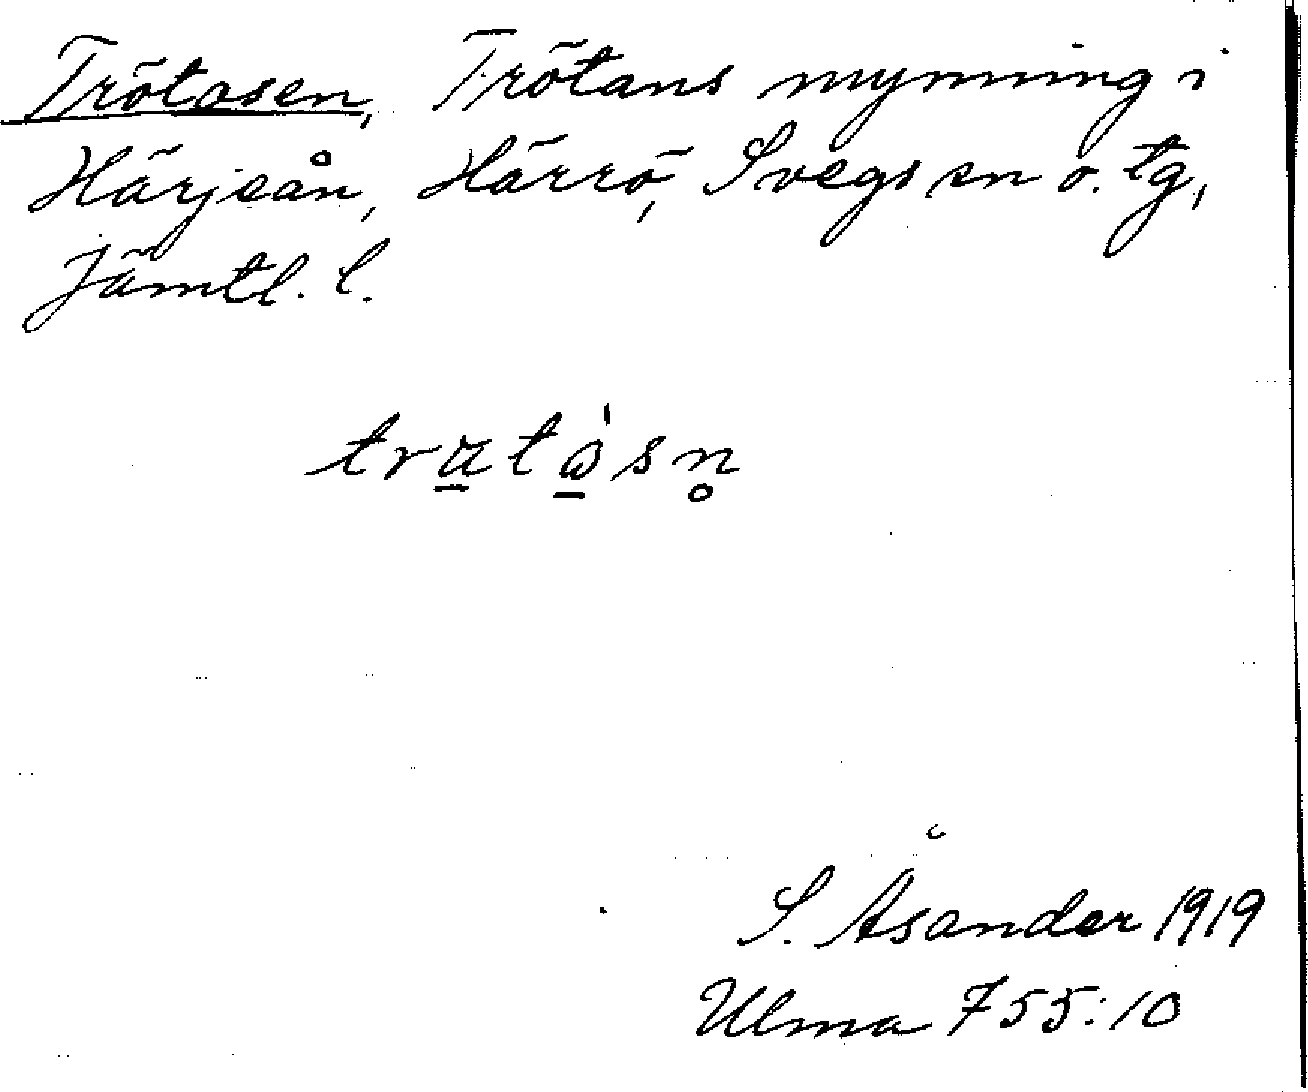 Trötosen, Trötans mynning i
Härjeån, Härrö, Svegs sn o. tg,
Jämtl. l.
tratåsn̥
S. Åsander 1919
Ulma 755:10